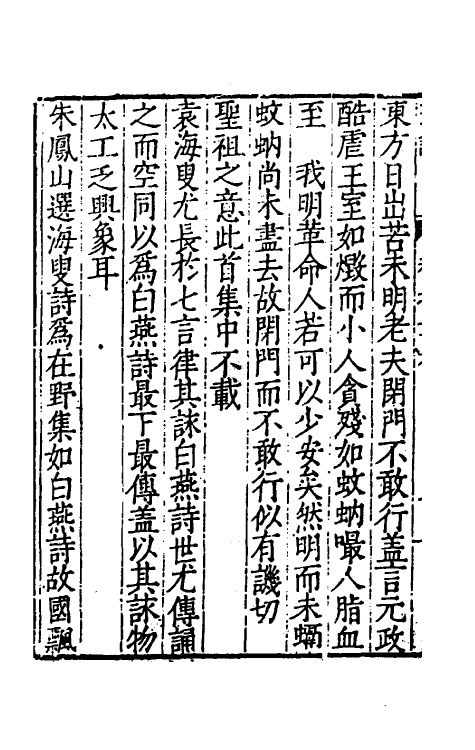 東方日出苦未明老夫閉門不敢行盖言元政
酷虐王室如燬而小人貪殘如蚊蚋嘬人脂血
至　我明革命人若可以少安矣然明而未螎
蚊蚋尚未盡去故閉門而不敢行似有譏切
聖祖之意此首集中不載
袁海叟尤長於七言律其詠白燕詩世尤傳誦
之而空同以爲白燕詩最下最傳盖以其詠物
太工乏興象耳
朱鳳山選海叟詩爲在野集如白燕詩故國飄